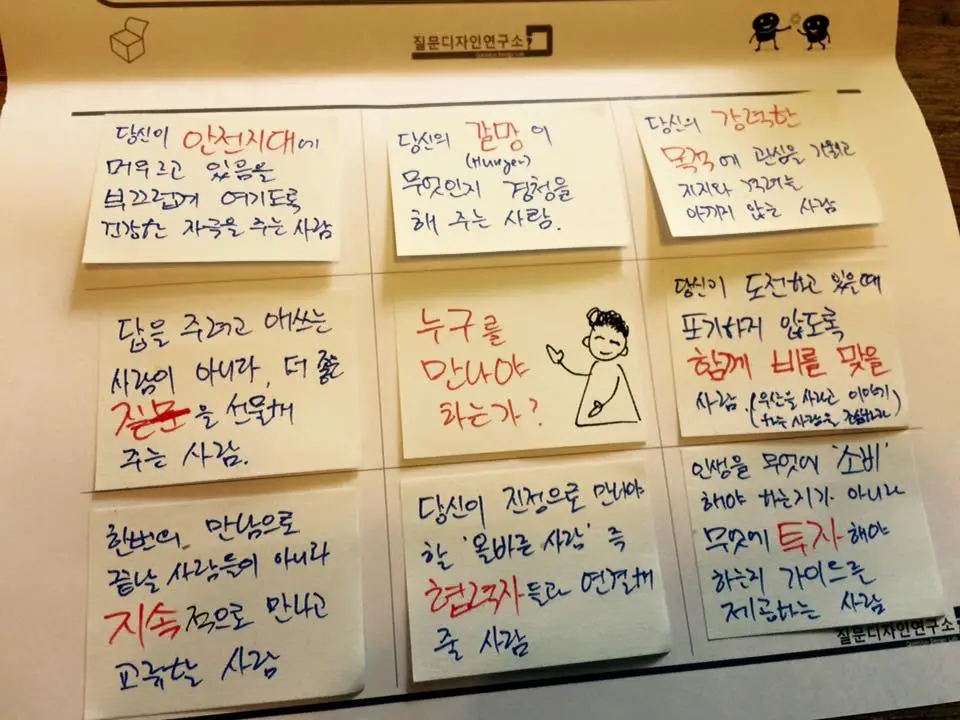 질문디자인연구소
Question Design Lab
당신이 안전지대에
머무르고 있음을
부끄럽게 여기도록
건강한 자극을 주는 사람
당신의 갈망이
(Hunger)
무엇인지 경청을
해 주는 사람.
당신의 강력한
목적에 관심을 기울이고
지지와 격려를
아끼지 않는 사람
답을 주려고 애쓰는
사람이 아니라, 더 좋은
질문을 선물해
주는 사람.
누구를
만나야
하는가?
당신이 도전하고 있을때
포기하지 않도록
함께 비를 맞을
사람. (우산을 사라고 이야기
하는 사람을 조심하라)
한번의 만남으로
끝날 사람들이 아니라
지속적으로 만나고
교류할 사람
당신이 진정으로 만나야
할 '올바른 사람' 즉
협력자들과 연결해
줄 사람
인생을 무엇에 '소비'
해야 하는지가 아니라
무엇에 투자해야
하는지 가이드를
제공하는 사람
질문디자인연구소